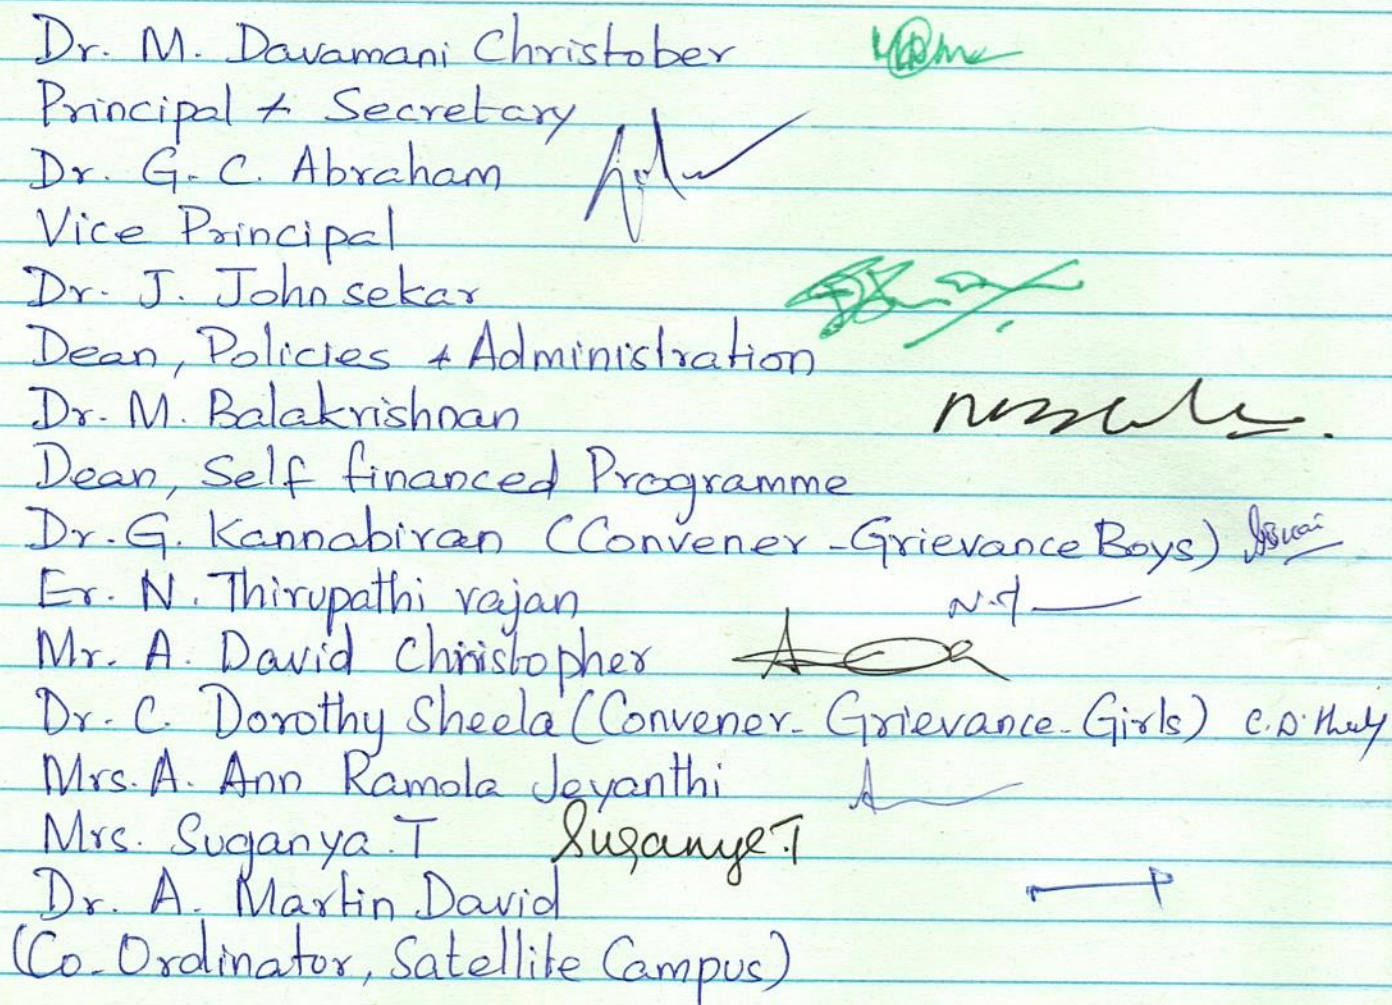 Dr. M. Davamani Christober
Principal + Secretary
Dr. G. C. Abraham
Vice Principal
Dr. J. John sekar
Dean, Policies + Administration
Dr. M. Balakrishnan
Dean, Self financed Programme
Dr. G. Kannabiran (Convener - Grievance Boys)
Er. N. Thirupathi rajan N.T
Mr. A. David Christopher
Dr. C. Dorothy Sheela (Convener - Grievance - Girls)
Mrs. A. Ann Ramola Jeyanthi
Mrs. Suganya . T Suganya.T
Dr. A. Martin David
(Co-Ordinator, Satellite Campus)